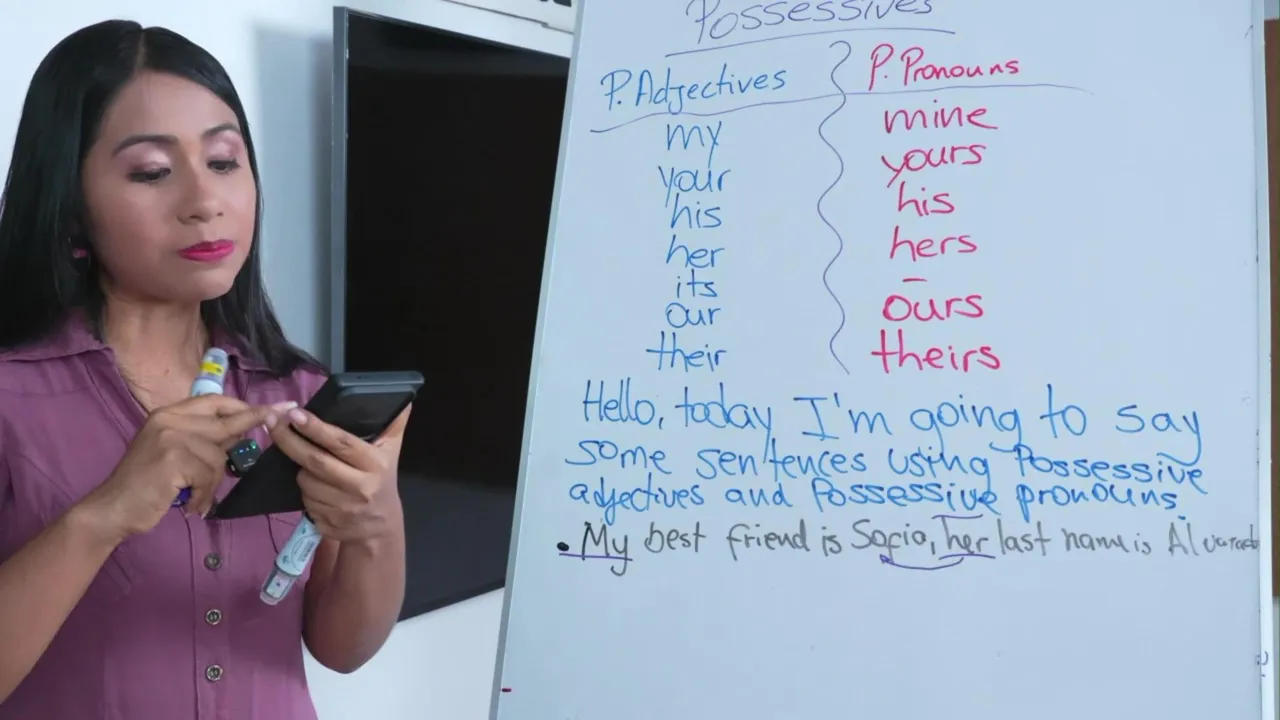 Possessives
P. Adjectives P. Pronouns
my mine
your yours
his his
her hers
its –
our ours
their theirs
Hello, today I'm going to say
some sentences using Possessive
adjectives and Possessive pronouns.
• My best friend is Sofia, her last name is Alvarado